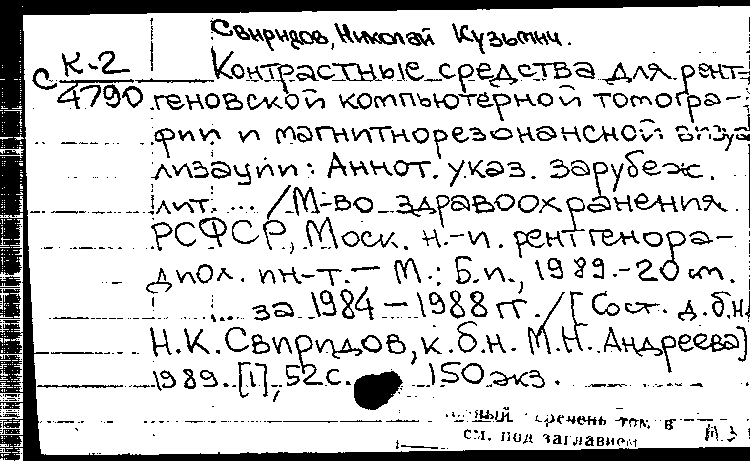 Свиридов, Николай Кузьмич.
С К-2 Контрастные средства для рент-
4790 геновской компьютерной томогра-
фии и магниторезонансной визуа
лизации: Аннот. указ. зарубеж.
лит. ... / М-во здравоохранения
РСФСР, Моск. н.-и. рентгенора-
диол. ин-т. — М.: Б.и., 1989. - 20 см.
... за 1984 — 1988 гг. / [Сост. д.б.н.
Н.К. Свиридов, к.б.н. М.Н. Андреева]
1989. [1], 52 с. 150 экз.
том. в
см. под заглавием